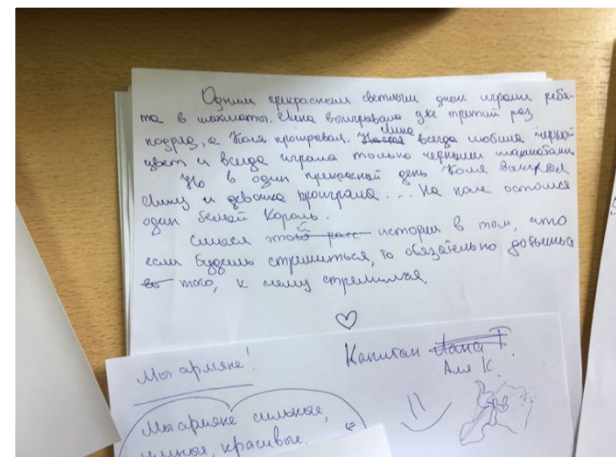 Одним прекрасным светлым днём играли ребя-
та в шахматы. Лина выигрывала уже третий раз
подряд, а Коля проигрывал. Лина всегда любила чёрный
цвет и всегда играла только чёрными шашками
Но в один прекрасный день Коля выиграл
Лину и девочка проиграла... На поле остался
один белый Король.
Смысл этой расс истории в том, что
если будешь стремиться, то обязательно добьёшься
того, к чему стремился.
Капитан Лана Т.
Аля К.
Мы армяне!
Мы армяне сильные,
умные, красивые.